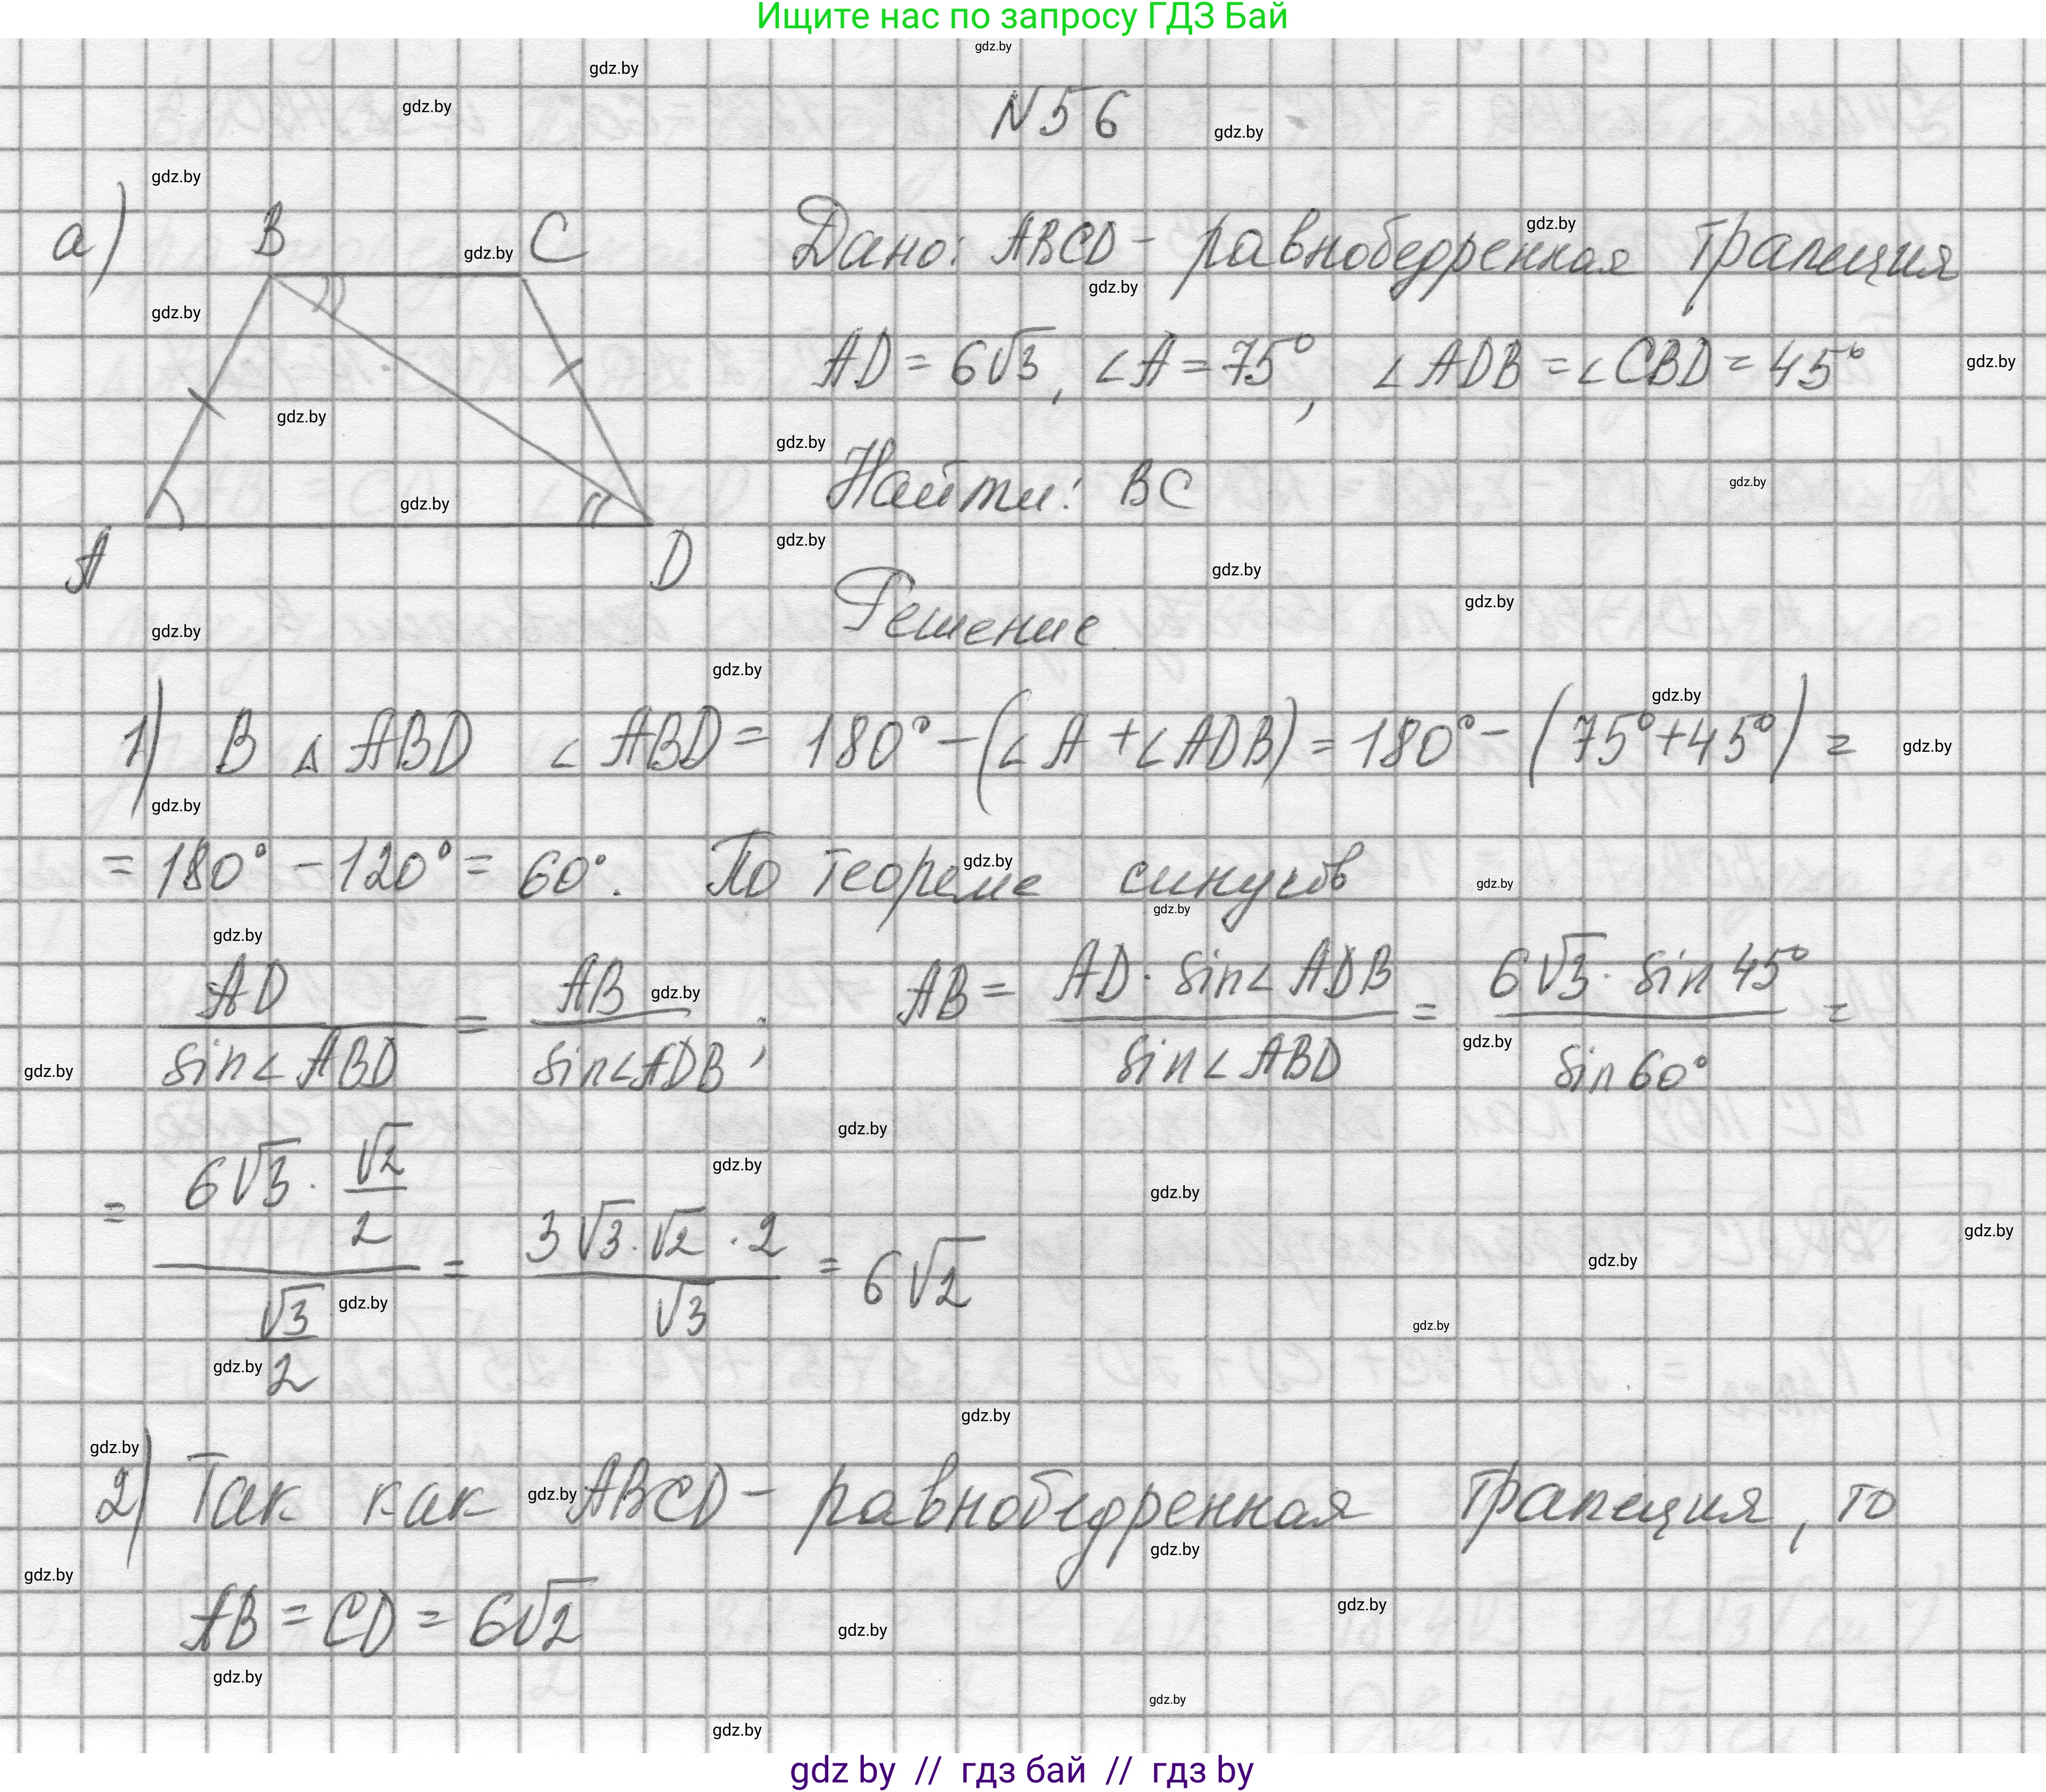 Ищите нас по запросу ГДЗ Бай
N56
а) B C
A D
Дано: ABCD - равнобедренная трапеция
AD = 6√3, ∠A = 75°, ∠ADB = ∠CBD = 45°
Найти: BC
Решение
1) В △ ABD ∠ABD = 180° - (∠A + ∠ADB) = 180° - (75° + 45°) =
= 180° - 120° = 60°. По теореме синусов
AD / sin∠ABD = AB / sin∠ADB ; AB = AD · sin∠ADB / sin∠ABD = 6√3 · sin 45° / sin 60° =
= (6√3 · √2/2) / (√3/2) = 3√3 · √2 · 2 / √3 = 6√2
2) Так как ABCD - равнобедренная трапеция, то
AB = CD = 6√2
gdz by // гдз бай // гдз by
gdz.by